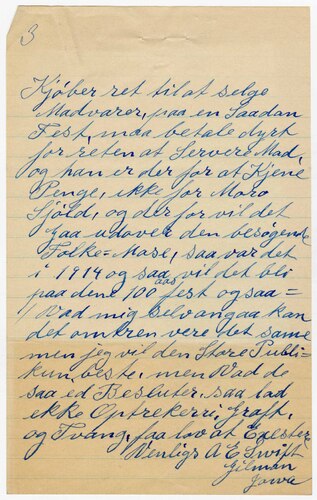 3
Kjøber ret til at selge
Madvarer, paa en Saadan
Fest, maa betale dyrt
for reten at Servere Mad,
og han er der for at Kjene
Penge, ikke for Moro
Sjöld, og der for vil det
gaa udover den besøgende
Folke=Mase, saa var det
i 1914 og saa vil det bli
paa dene 100 aas fest og saa=
Vad mig selv angaa kan
det omkren vere det same
men jeg vil den Store Publi-
kun, beste, men Vad de
saa ed Besluter, saa lad
ekke Optrekerri, Graft,
og Tvang, faa lov at Exester
Venligs A E Swift
Gilman
Iowa